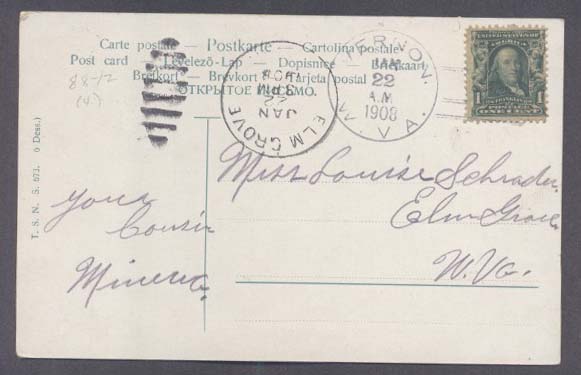 Carte postale — Postkarte — Cartolina postale
Post card — Levelező-Lap — Dopisnice — Briefkaart
Brefkort — Brevkort — Tarjeta postal
ОТКРЫТОЕ ПИСЬМО.
88-12
(4)
ELM GROVE
JAN
22
3 PM
1908
VERNON.
JAN
22
A.M.
1908
W. VA.
1
ONE CENT
1
T. S. N. S. 673. 6 Dess.)
your
Cousin
Minerva.
Miss Louise Schrader.
Elm Grove
W. Va.